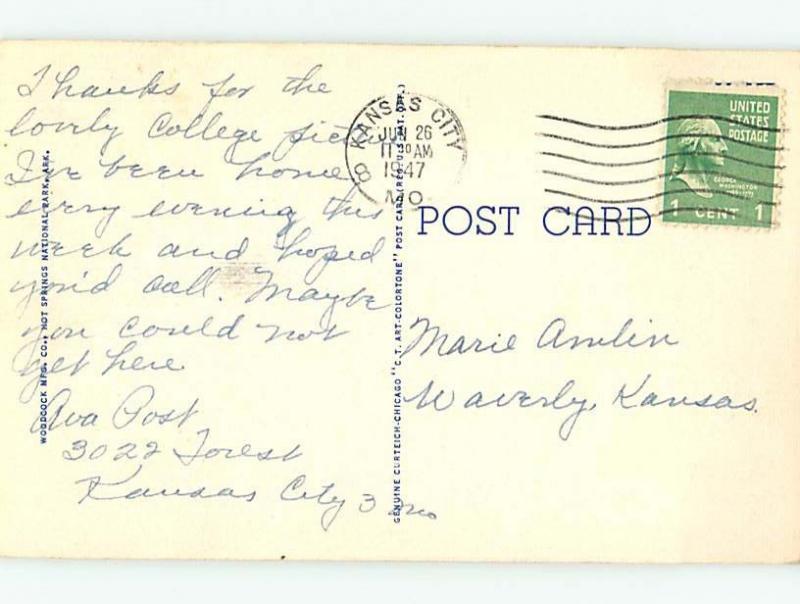 Thanks for the
lovely College picture
I've been home
every evening this
week and hoped
you'd call. Maybe
you could not
get here
Ava Post
3022 Forest
Kansas City 3 Mo
WOODCOCK MFG. CO., HOT SPRINGS NATIONAL PARK, ARK.
GENUINE CURTEICH-CHICAGO "C.T. ART-COLORTONE" POST CARD (REG. U.S. PAT. OFF.)
KANSAS CITY
8
JUN 26
11 30 AM
1947
MO.
UNITED
STATES
POSTAGE
GEORGE
WASHINGTON
1 CENT 1
POST CARD
Marie Amlin
Waverly, Kansas.